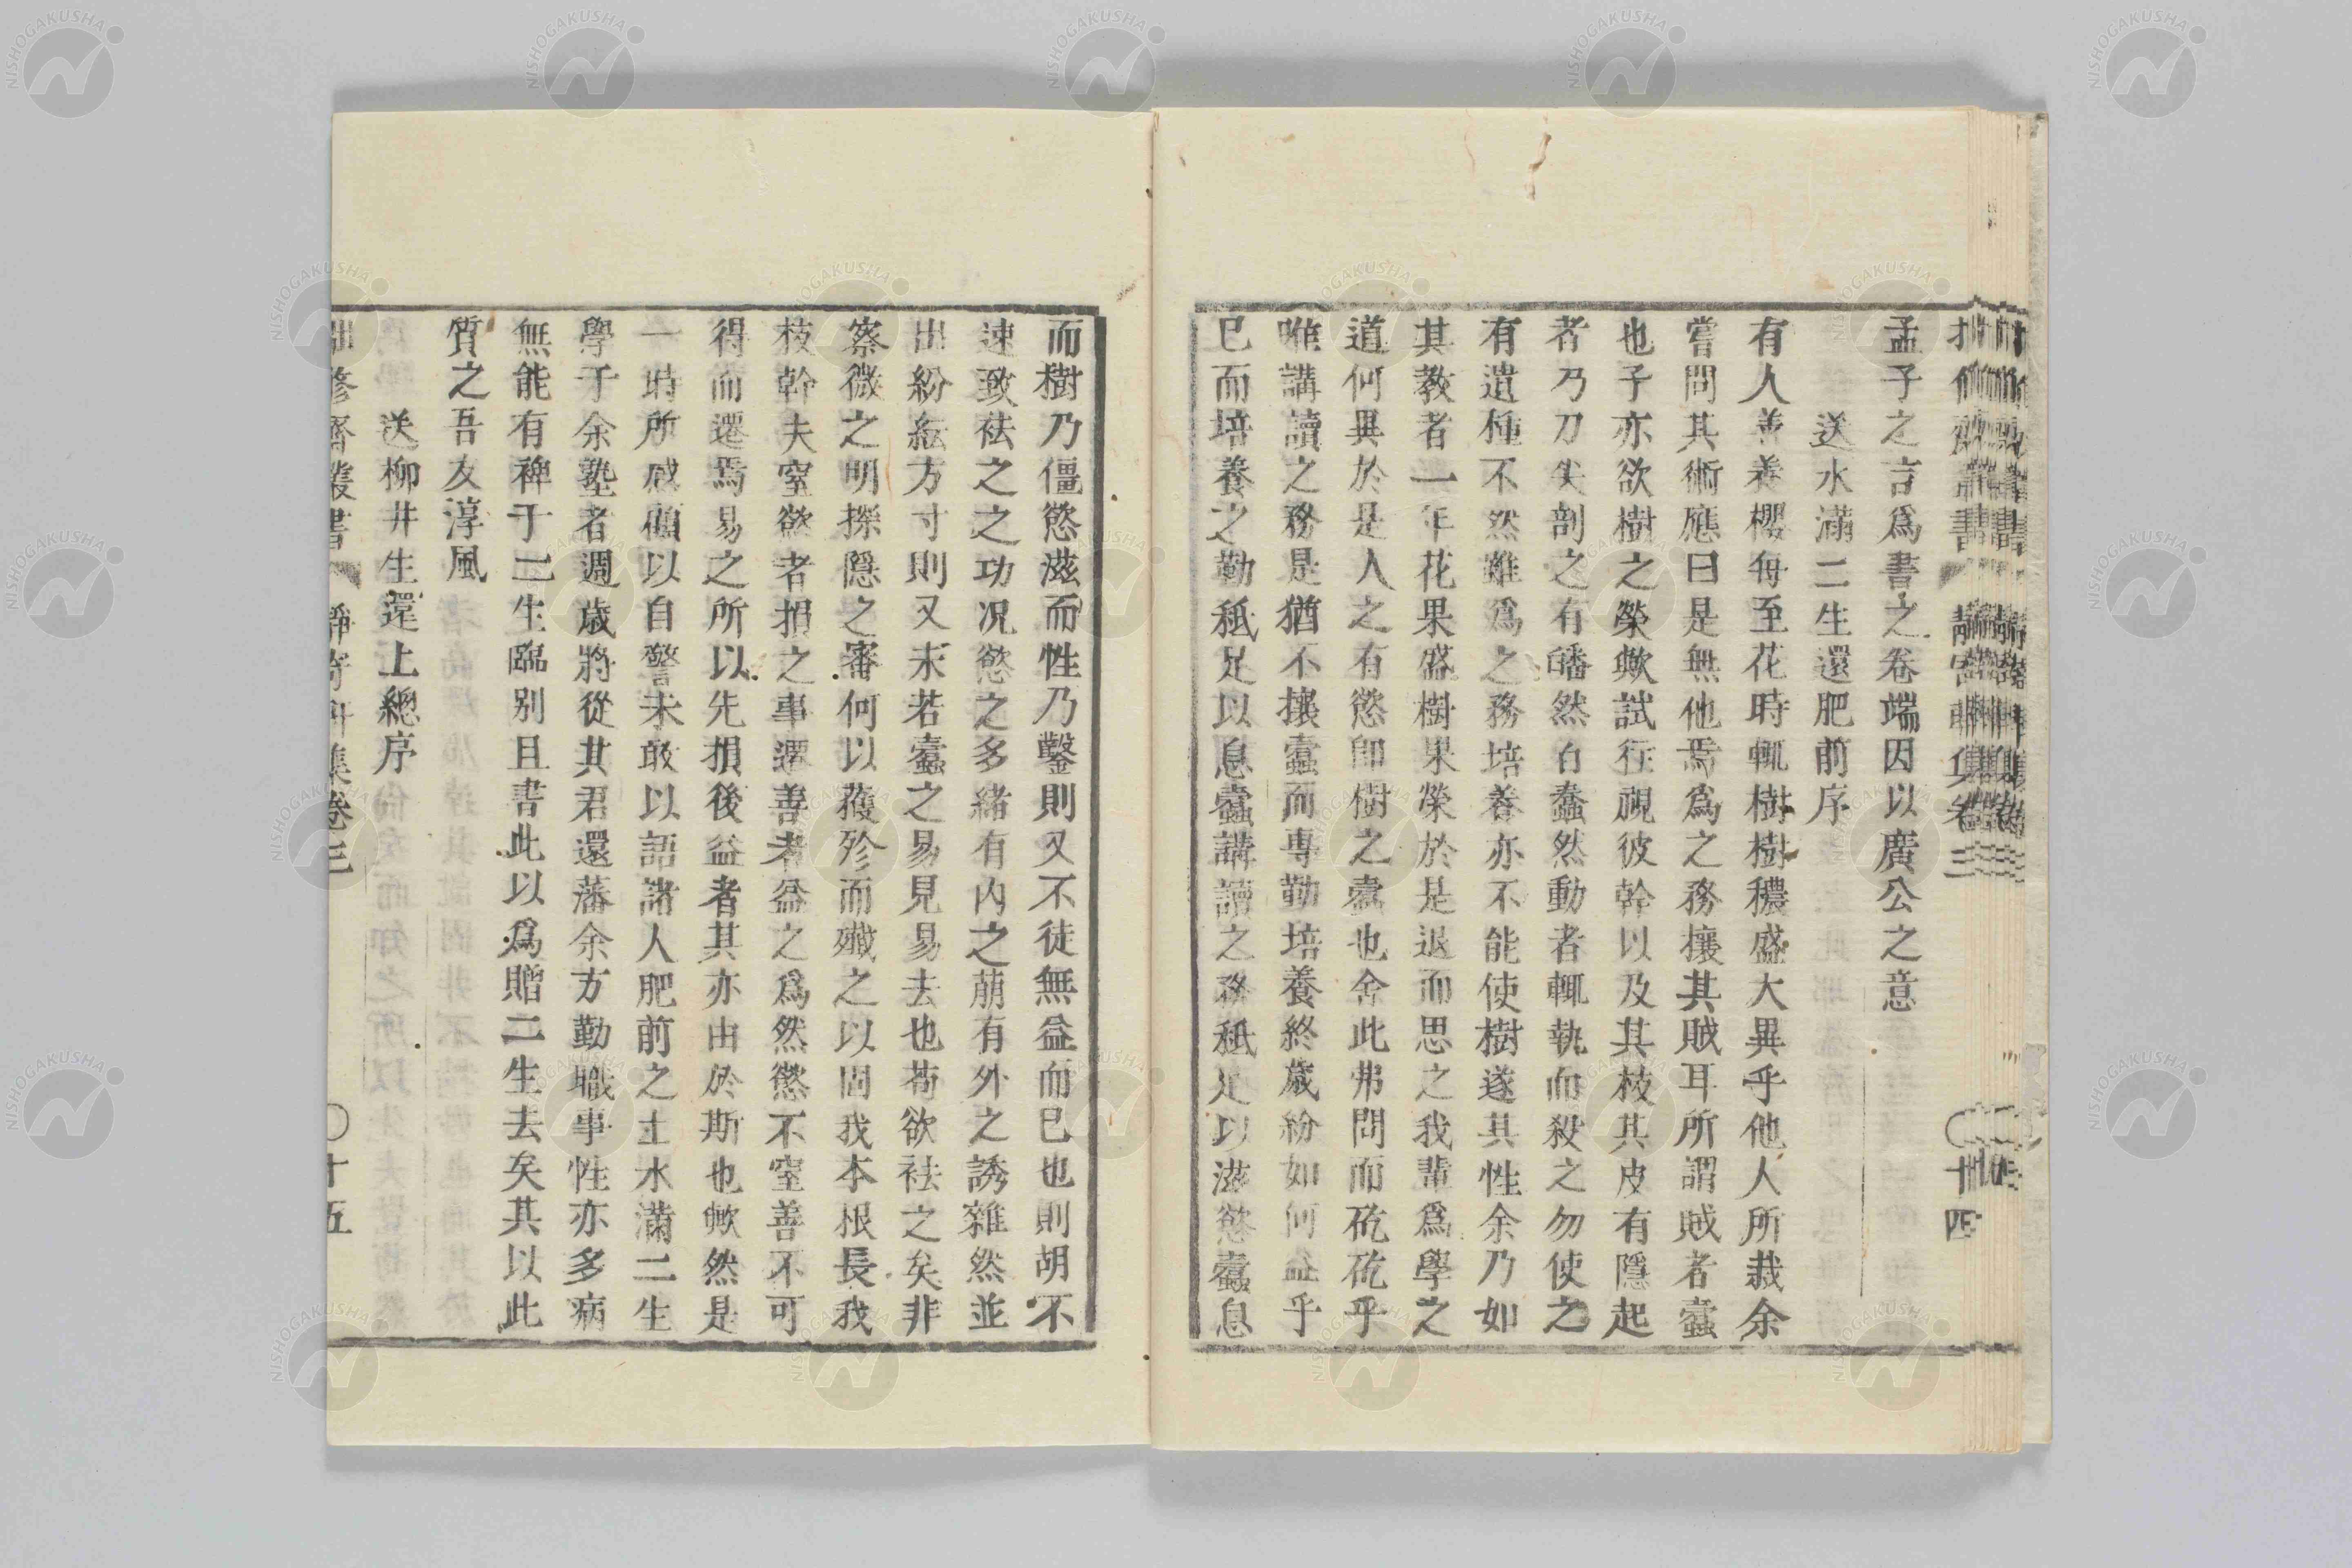 孟子之言爲書之卷端因以廣公之意
送水滿二生還肥前序
有人善養櫻每至花時輒樹樹穠盛大異乎他人所栽余
嘗問其術應曰是無他焉爲之務攘其賊耳所謂賊者蠹
也子亦欲樹之榮歟試往視彼幹以及其枝其皮有隱起
者乃刀尖剖之有皤然白蠢然動者輒執而殺之勿使之
有遺種不然雖爲之務培養亦不能使樹遂其性余乃如
其教者一年花果盛樹果榮於是退而思之我輩爲學之
道何異於是人之有慾卽樹之蠹也舍此弗問而矻矻乎
唯講讀之務是猶不攘蠹而專勤培養終歲紛如何益乎
已而培養之勤秪足以息蠹講讀之務秪足以滋慾蠹息
而樹乃僵慾滋而性乃鑿則又不徒無益而已也則胡不
速致袪之之功况慾之多緒有內之萠有外之誘雜然並
出紛紜方寸則又未若蠹之易見易去也苟欲袪之矣非
察微之明探隱之審何以蕿殄而殲之以固我本根長我
枝幹夫窒慾者損之事遷善者益之爲然慾不窒善不可
得而遷焉易之所以先損後益者其亦由於斯也歟然是
一時所感頋以自警未敢以語諸人肥前之士水滿二生
學于余塾者週歲將從其君還藩余方勤職事性亦多病
無能有裨于二生臨别且書此以爲贈二生去矣其以此
質之吾友淳風
送柳井生還上總序
修齋叢書 集卷三 〇十五